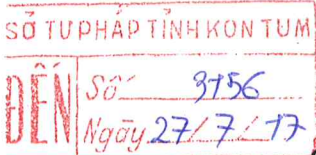 SỞ TƯ PHÁP TỈNH KON TUM
ĐẾN
Số 3156
Ngày 27/7/17